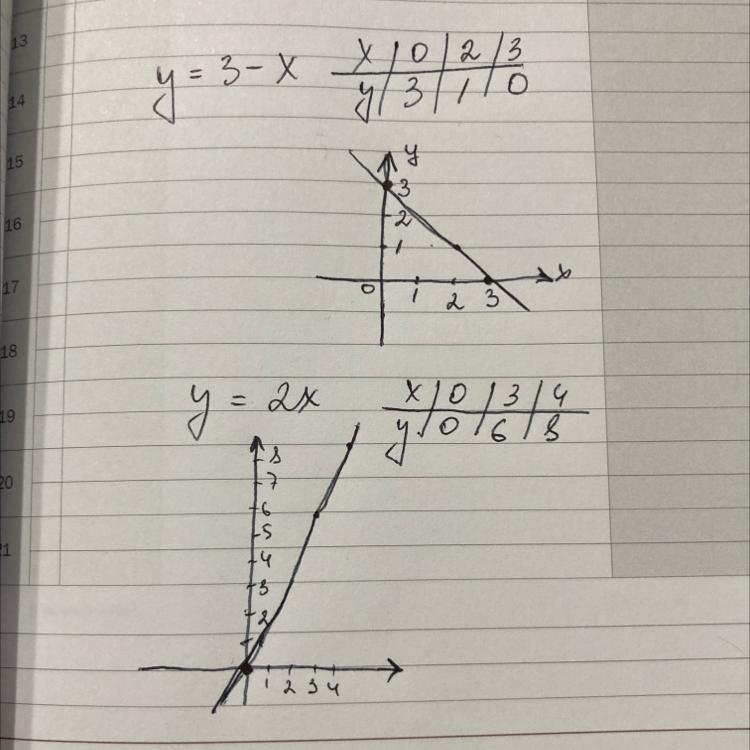 13
y = 3 - x
x | 0 | 2 | 3
14
y | 3 | 1 | 0
15
y
3
16
2
1
x
17
0 1 2 3
18
y = 2x
x | 0 | 3 | 4
19
y | 0 | 6 | 8
8
20
7
6
5
21
4
3
2
1 2 3 4